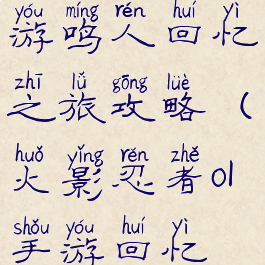 yóu míng rén huí yì
游鸣人回忆
zhī lǚ gōng lüè
之旅攻略(
huǒ yǐng rěn zhě
火影忍者ol
shǒu yóu huí yì
手游回忆